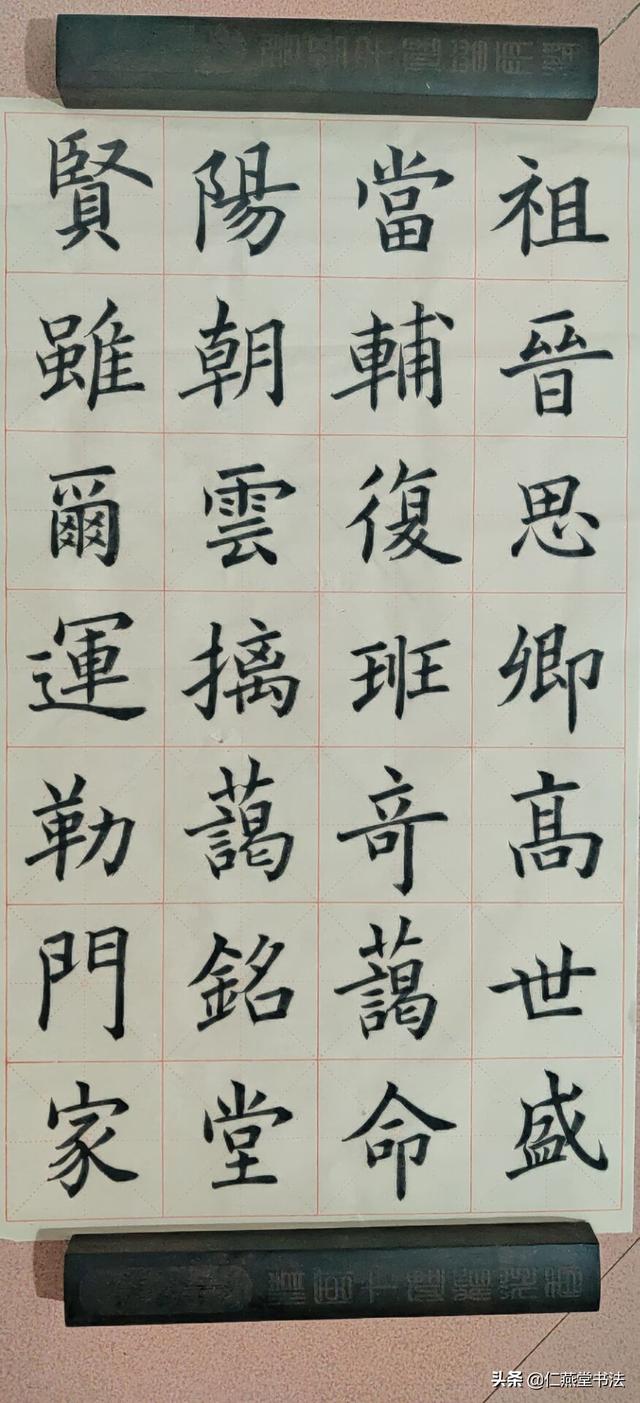 祖晉思卿高世盛
當輔復班奇藹命
陽朝雲摛藹銘堂
賢雖爾運勒門家
头条 @仁燕堂书法